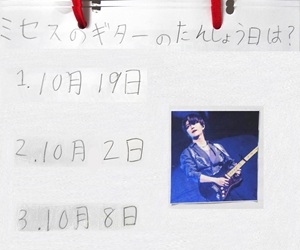 ミセスのギターのたんじょう日は?
1.10月19日
2.10月2日
3.10月8日